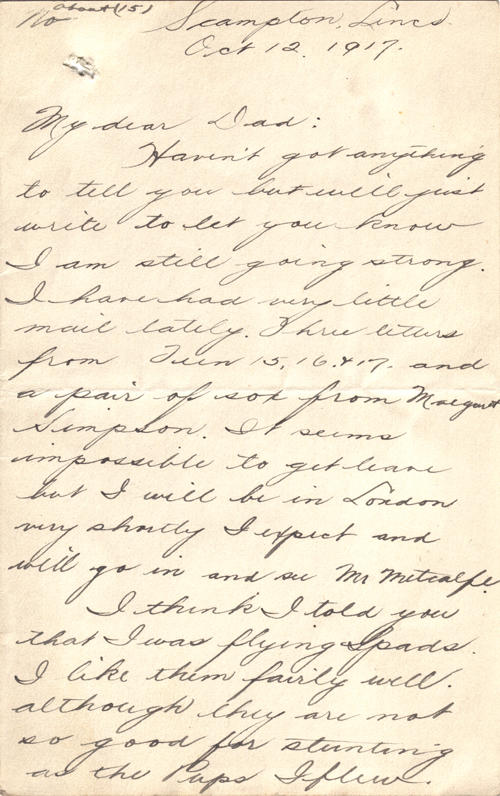 No about (15)
Scampton, Lincs.
Oct 12. 1917.
My dear Dad:
Haven't got anything
to tell you but will just
write to let you know
I am still going strong.
I have had very little
mail lately. Three letters
from 15, 16, & 17. and
a pair of sox from Margaret
Simpson. It seems
impossible to get leave
but I will be in London
very shortly I expect and
will go in and see Mr Metcalfe.
I think I told you
that I was flying Spads.
I like them fairly well.
although they are not
so good for stunting
as the Pups I flew.